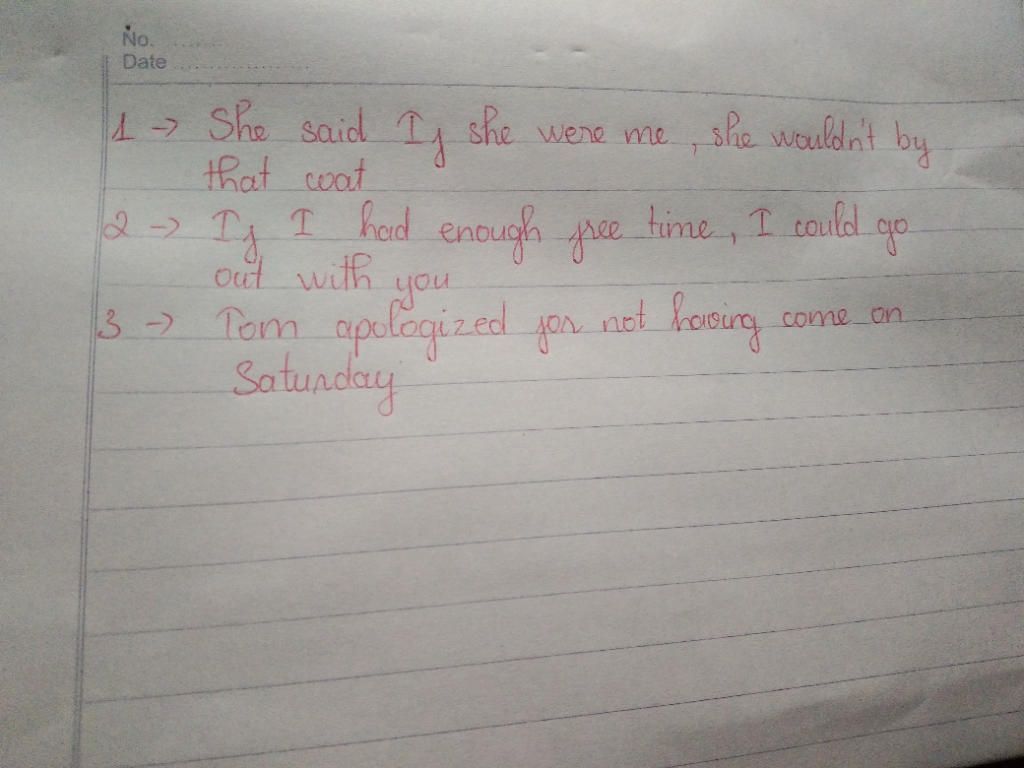 No. ............
Date ........................
1 → She said If she were me, she wouldn't by
that coat
2 → If I had enough free time, I could go
out with you
3 → Tom apologized for not having come on
Saturday